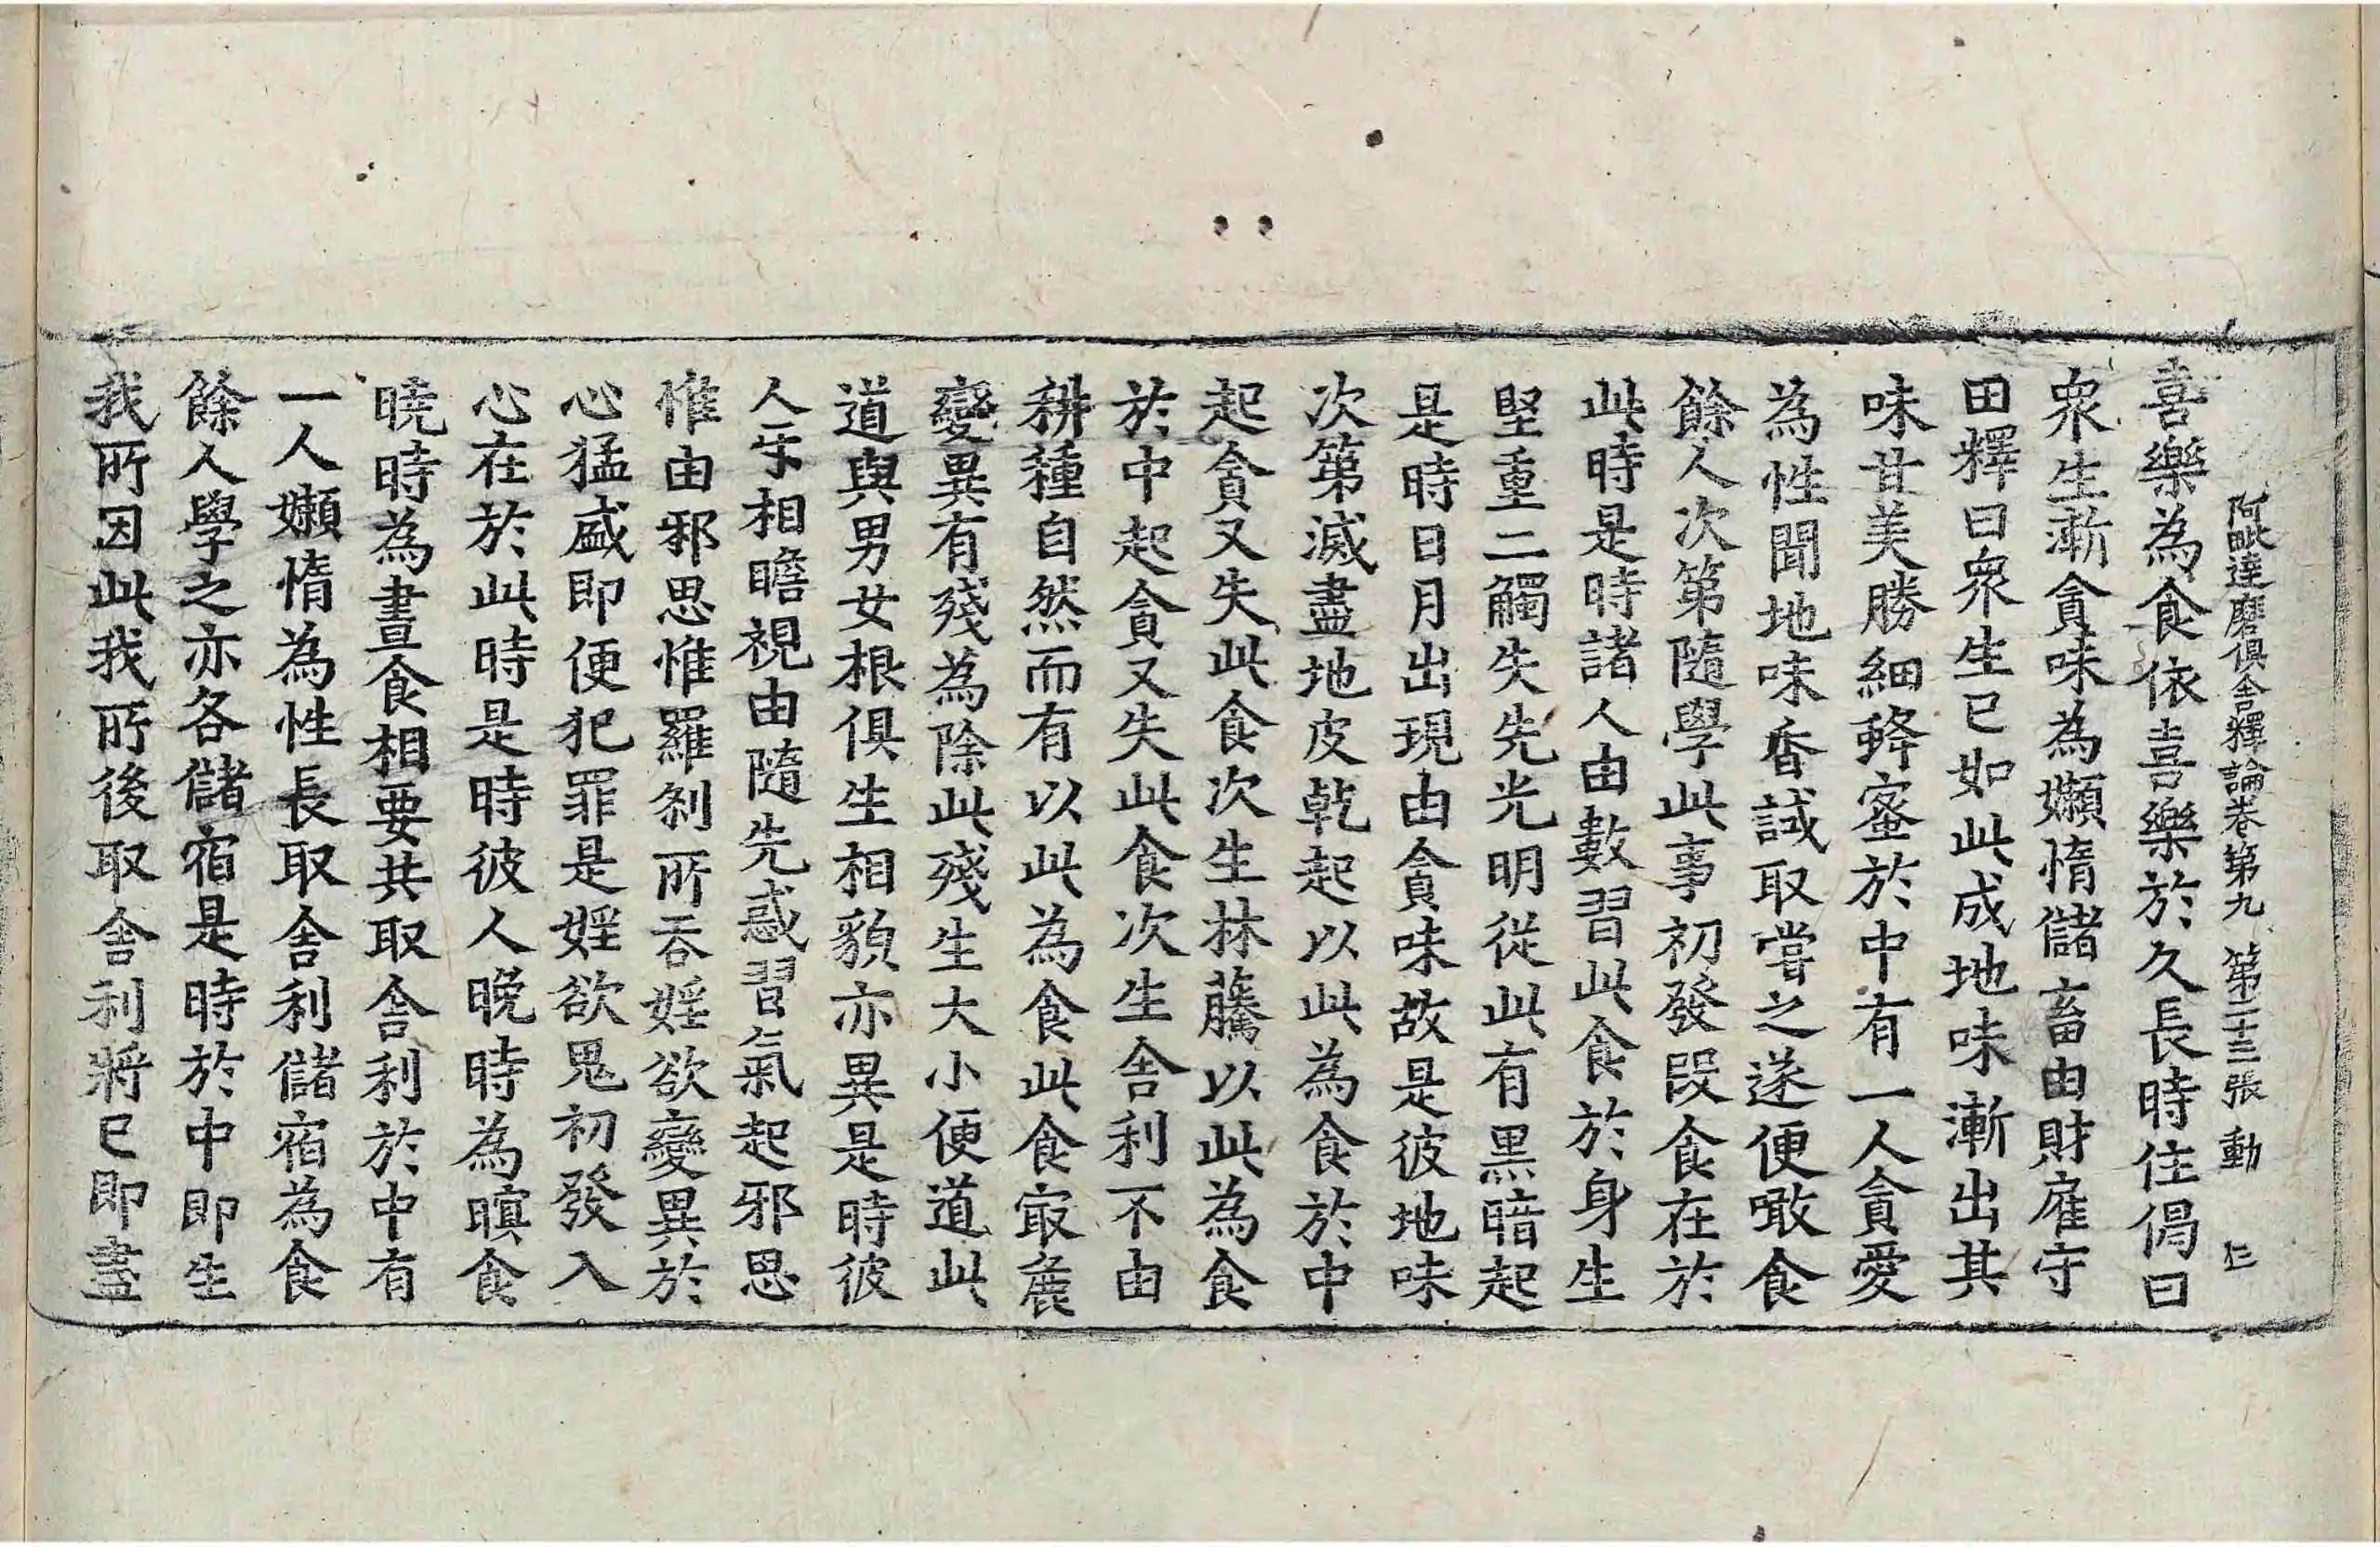 阿毗達磨俱舍釋論卷第九 第二十三張 動
喜樂為食依喜樂於久長時住偈曰
衆生漸貪味為嬾惰儲畜由財雇守
田釋曰衆生已如此成地味漸出其
味甘美勝細蜂蜜於中有一人貪愛
為性聞地味香誡取嘗之遂便噉食
餘人次第隨學此事初發段食在於
此時是時諸人由數習此食於身生
堅重二觸失先光明從此有黒暗起
是時日月出現由貪味故是彼地味
次第滅盡地皮乾起以此為食於中
起貪又失此食次生林藤以此為食
於中起貪又失此食次生舍利不由
耕種自然而有以此為食此食㝡麁
變異有殘為除此殘生大小便道此
道與男女根俱生相貌亦異是時彼
人㸦相瞻視由隨先惑習氣起邪思
惟由邪思惟羅刹所吞婬欲變異於
心猛盛即便犯罪是婬欲鬼初發入
心在於此時是時彼人晚時為暝食
曉時為晝食相要共取舍利於中有
一人嬾惰為性長取舍利儲宿為食
餘人學之亦各儲宿是時於中即生
我所因此我所後取舍利將已即盡